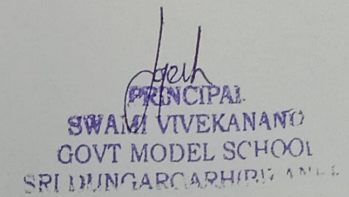 PRINCIPAL
SWAMI VIVEKANAND
GOVT MODEL SCHOOL
SRI DUNGARGARH(BIKANER